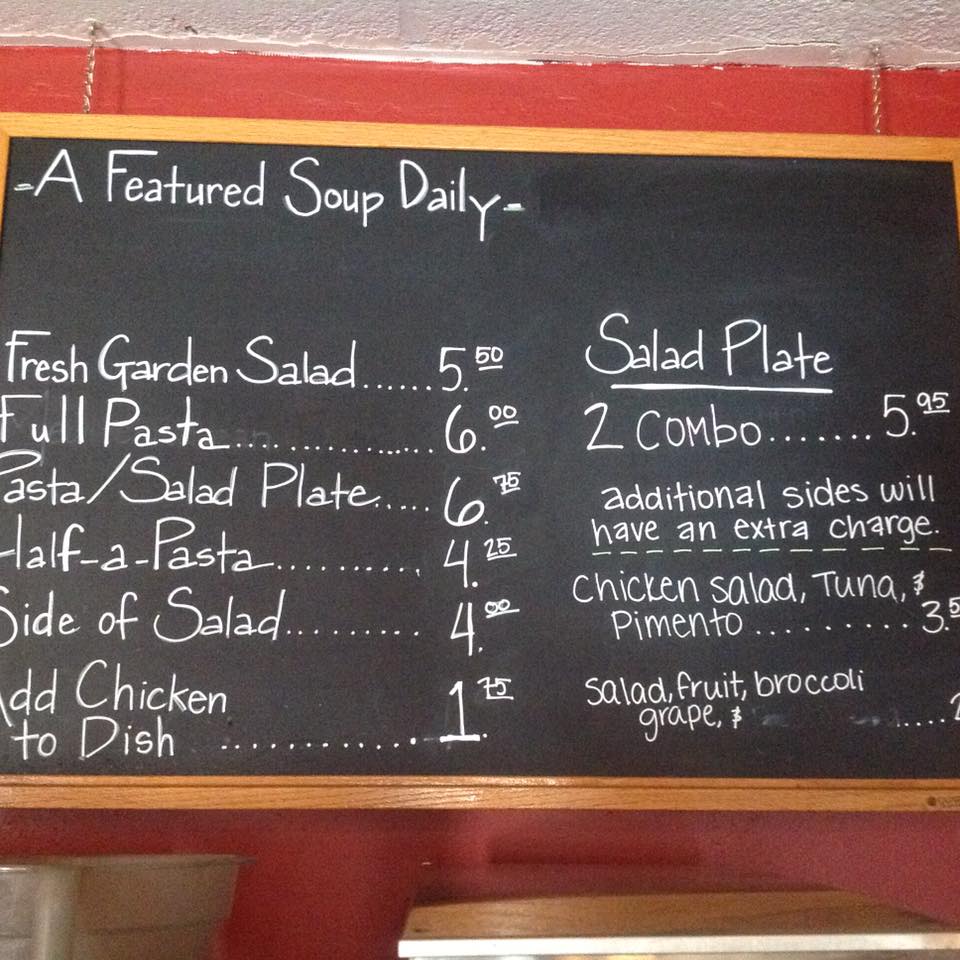 -A Featured Soup Daily-
Fresh Garden Salad......5.50
Full Pasta..................6.00
Pasta/Salad Plate.....6.75
Half-a-Pasta...........4.25
Side of Salad.........4.00
Add Chicken
to Dish ..............1.75
Salad Plate
2 Combo.......5.95
additional sides will
have an extra charge.
Chicken salad, Tuna, &
Pimento.........3.5
salad, fruit, broccoli
grape, & ....2